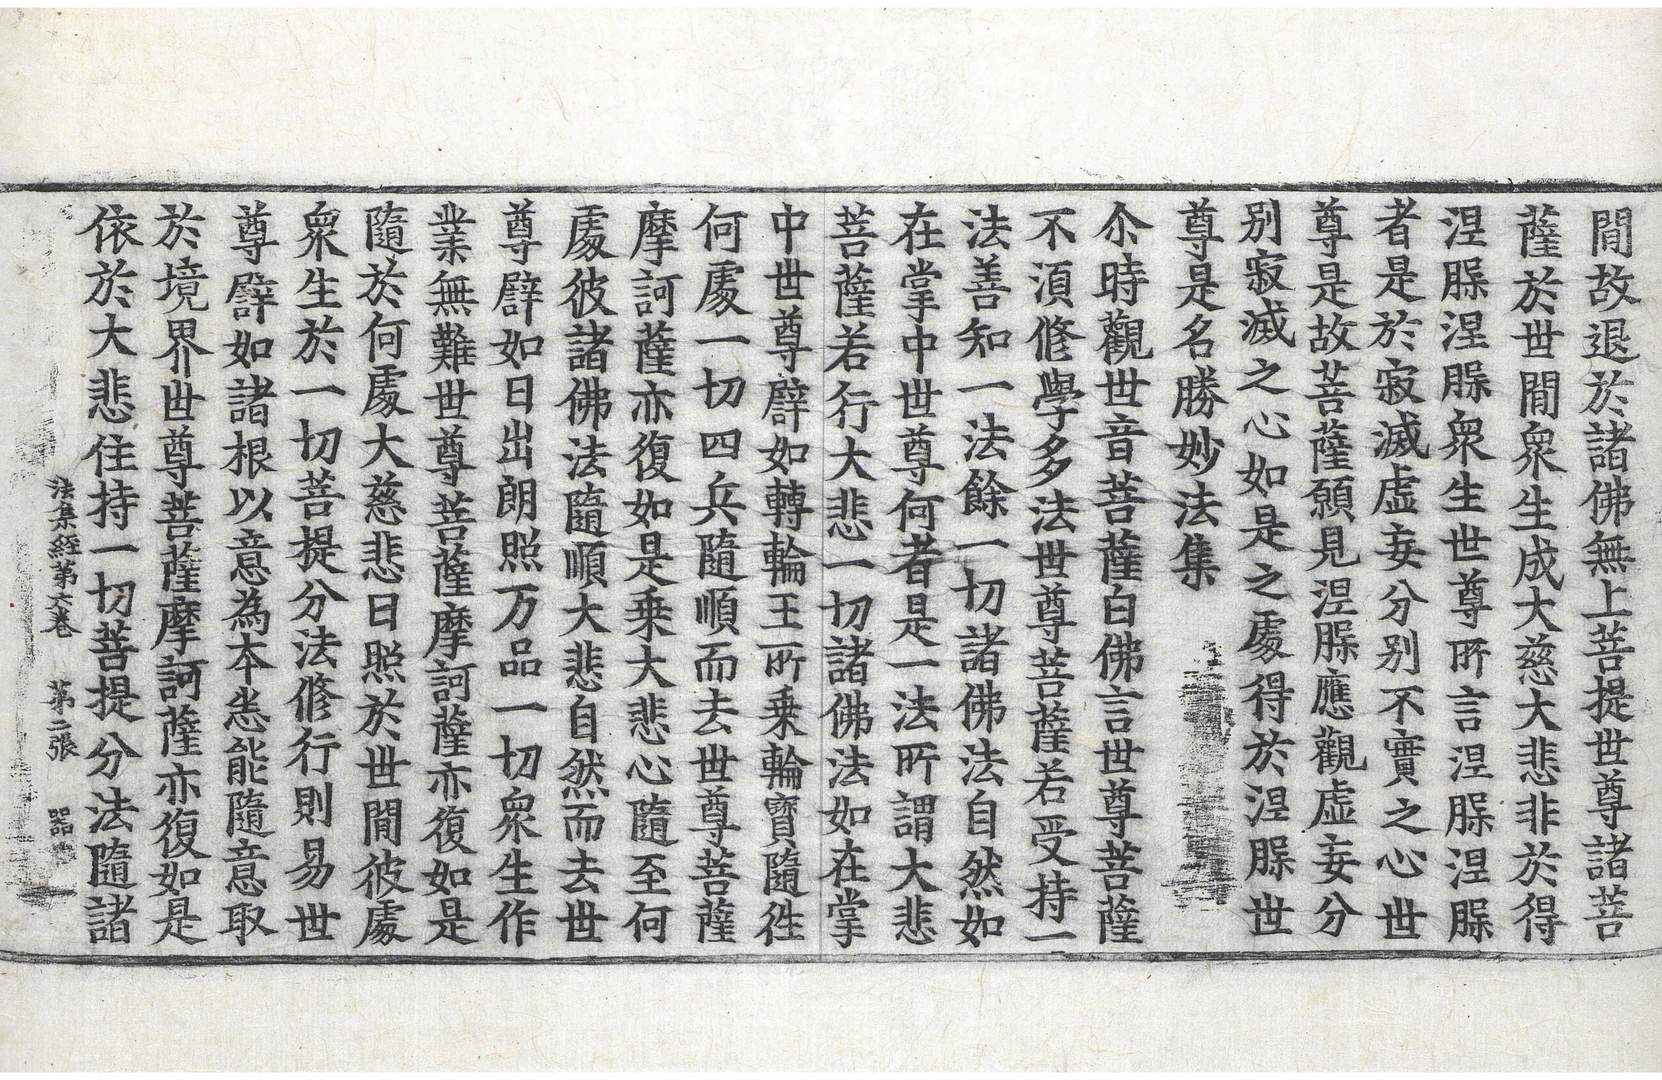 閒故退於諸佛無上菩提世尊諸菩
薩於世閒衆生成大慈大悲非於得
涅槃涅槃衆生世尊所言涅槃涅槃
者是於寂滅虛妄分別不實之心世
尊是故菩薩願見涅槃應觀虛妄分
別寂滅之心如是之處得於涅槃世
尊是名勝妙法集
尒時觀世音菩薩白佛言世尊菩薩
不湏修學多法世尊菩薩若受持一
法善知一法餘一切諸佛法自然如
在掌中世尊何者是一法所謂大悲
菩薩若行大悲一切諸佛法如在掌
中世尊譬如轉輪王所乗輪寶隨徃
何處一切四兵隨順而去世尊菩薩
摩訶薩亦復如是乗大悲心隨至何
處彼諸佛法隨順大悲自然而去世
尊譬如日出朗照万品一切衆生作
業無難世尊菩薩摩訶薩亦復如是
隨於何處大慈悲日照於世閒彼處
衆生於一切菩提分法修行則易世
尊譬如諸根以意為本悉能隨意取
於境界世尊菩薩摩訶薩亦復如是
依於大悲住持一切菩提分法隨諸
法集經第六卷　第二張　器